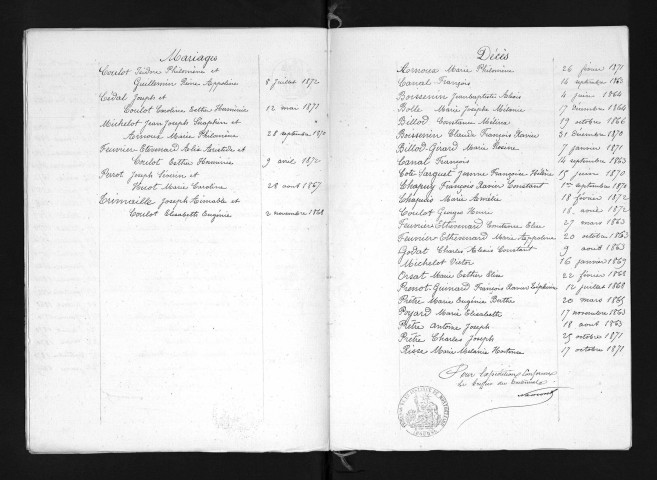 Mariages
Coulot Isidore Philomène et
Guillemin Reine Appoline 8 juillet 1872
Cedal Joseph et
Coulot Caroline Esther Flaminie 12 mai 1871
Michelot Jean Joseph Seraphin et
Arnoux Marie Philomène 28 septembre 1870
Feuvrier Etevenard Elie Aristide et
Coulot Esther Flaminie 9 avril 1872
Perrot Joseph Severin et
Huot Marie Caroline 28 aout 1867
Trimaille Joseph Aimable et
Coulot Elisabeth Eugénie 2 novembre 1868
Décès
Arnoux Marie Philomène 26 février 1871
Canal François 14 septembre 1863
Boissenin Jean Baptiste Alexis 4 juin 1864
Bolle Marie Josèphe Mélanie 17 décembre 1864
Billod Constance Mélina 19 octobre 1866
Boissenin Claude François Xavier 31 décembre 1870
Billod-Girard Marie Rosine 7 janvier 1871
Canal François 14 septembre 1863
Cote Jarguet Jeanne Françoise 15 juin 1870
Chapuy François Xavier Constant 1er septembre 1870
Chapuis Marie Amélie 18 février 1872
Coulot Georges Henri 18 avril 1872
Feuvrier Ethevenard Constance Elise 27 mars 1863
Feuvrier Ethevenard Marie Appoline 20 octobre 1863
Godat Charles Alexis Constant 9 aout 1863
Michelot Victor 16 janvier 1869
Orsat Marie Esther Elise 22 février 1868
Prenot-Guinard François Xavier Delphin 12 juillet 1868
Prêtre Marie Eugénie Berthe 20 mars 1865
Poyard Marie Elisabeth 17 novembre 1863
Prêtre Antoine Joseph 18 aout 1863
Prêtre Charles Joseph 25 octobre 1871
Marie Mélanie Hortense 17 octobre 1871
Pour expédition Conforme
Le Greffier du tribunal